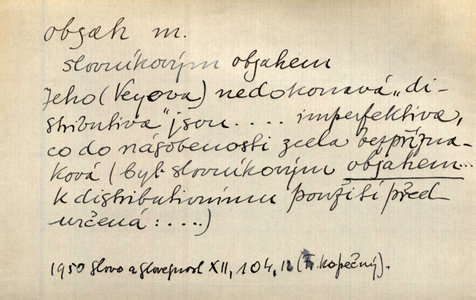 obsah m.
slovníkovým obsahem
Jeho (Veyova) nedokonavá „di-
stributiva" jsou .... imperfektiva,
co do násobenosti zcela bezpřízna-
ková (byť slovníkovým obsahem...
k distributivnímu použití před
určená: ....)
1950 Slovo a slovesnost XII, 104, 12 (F. Kopečný).